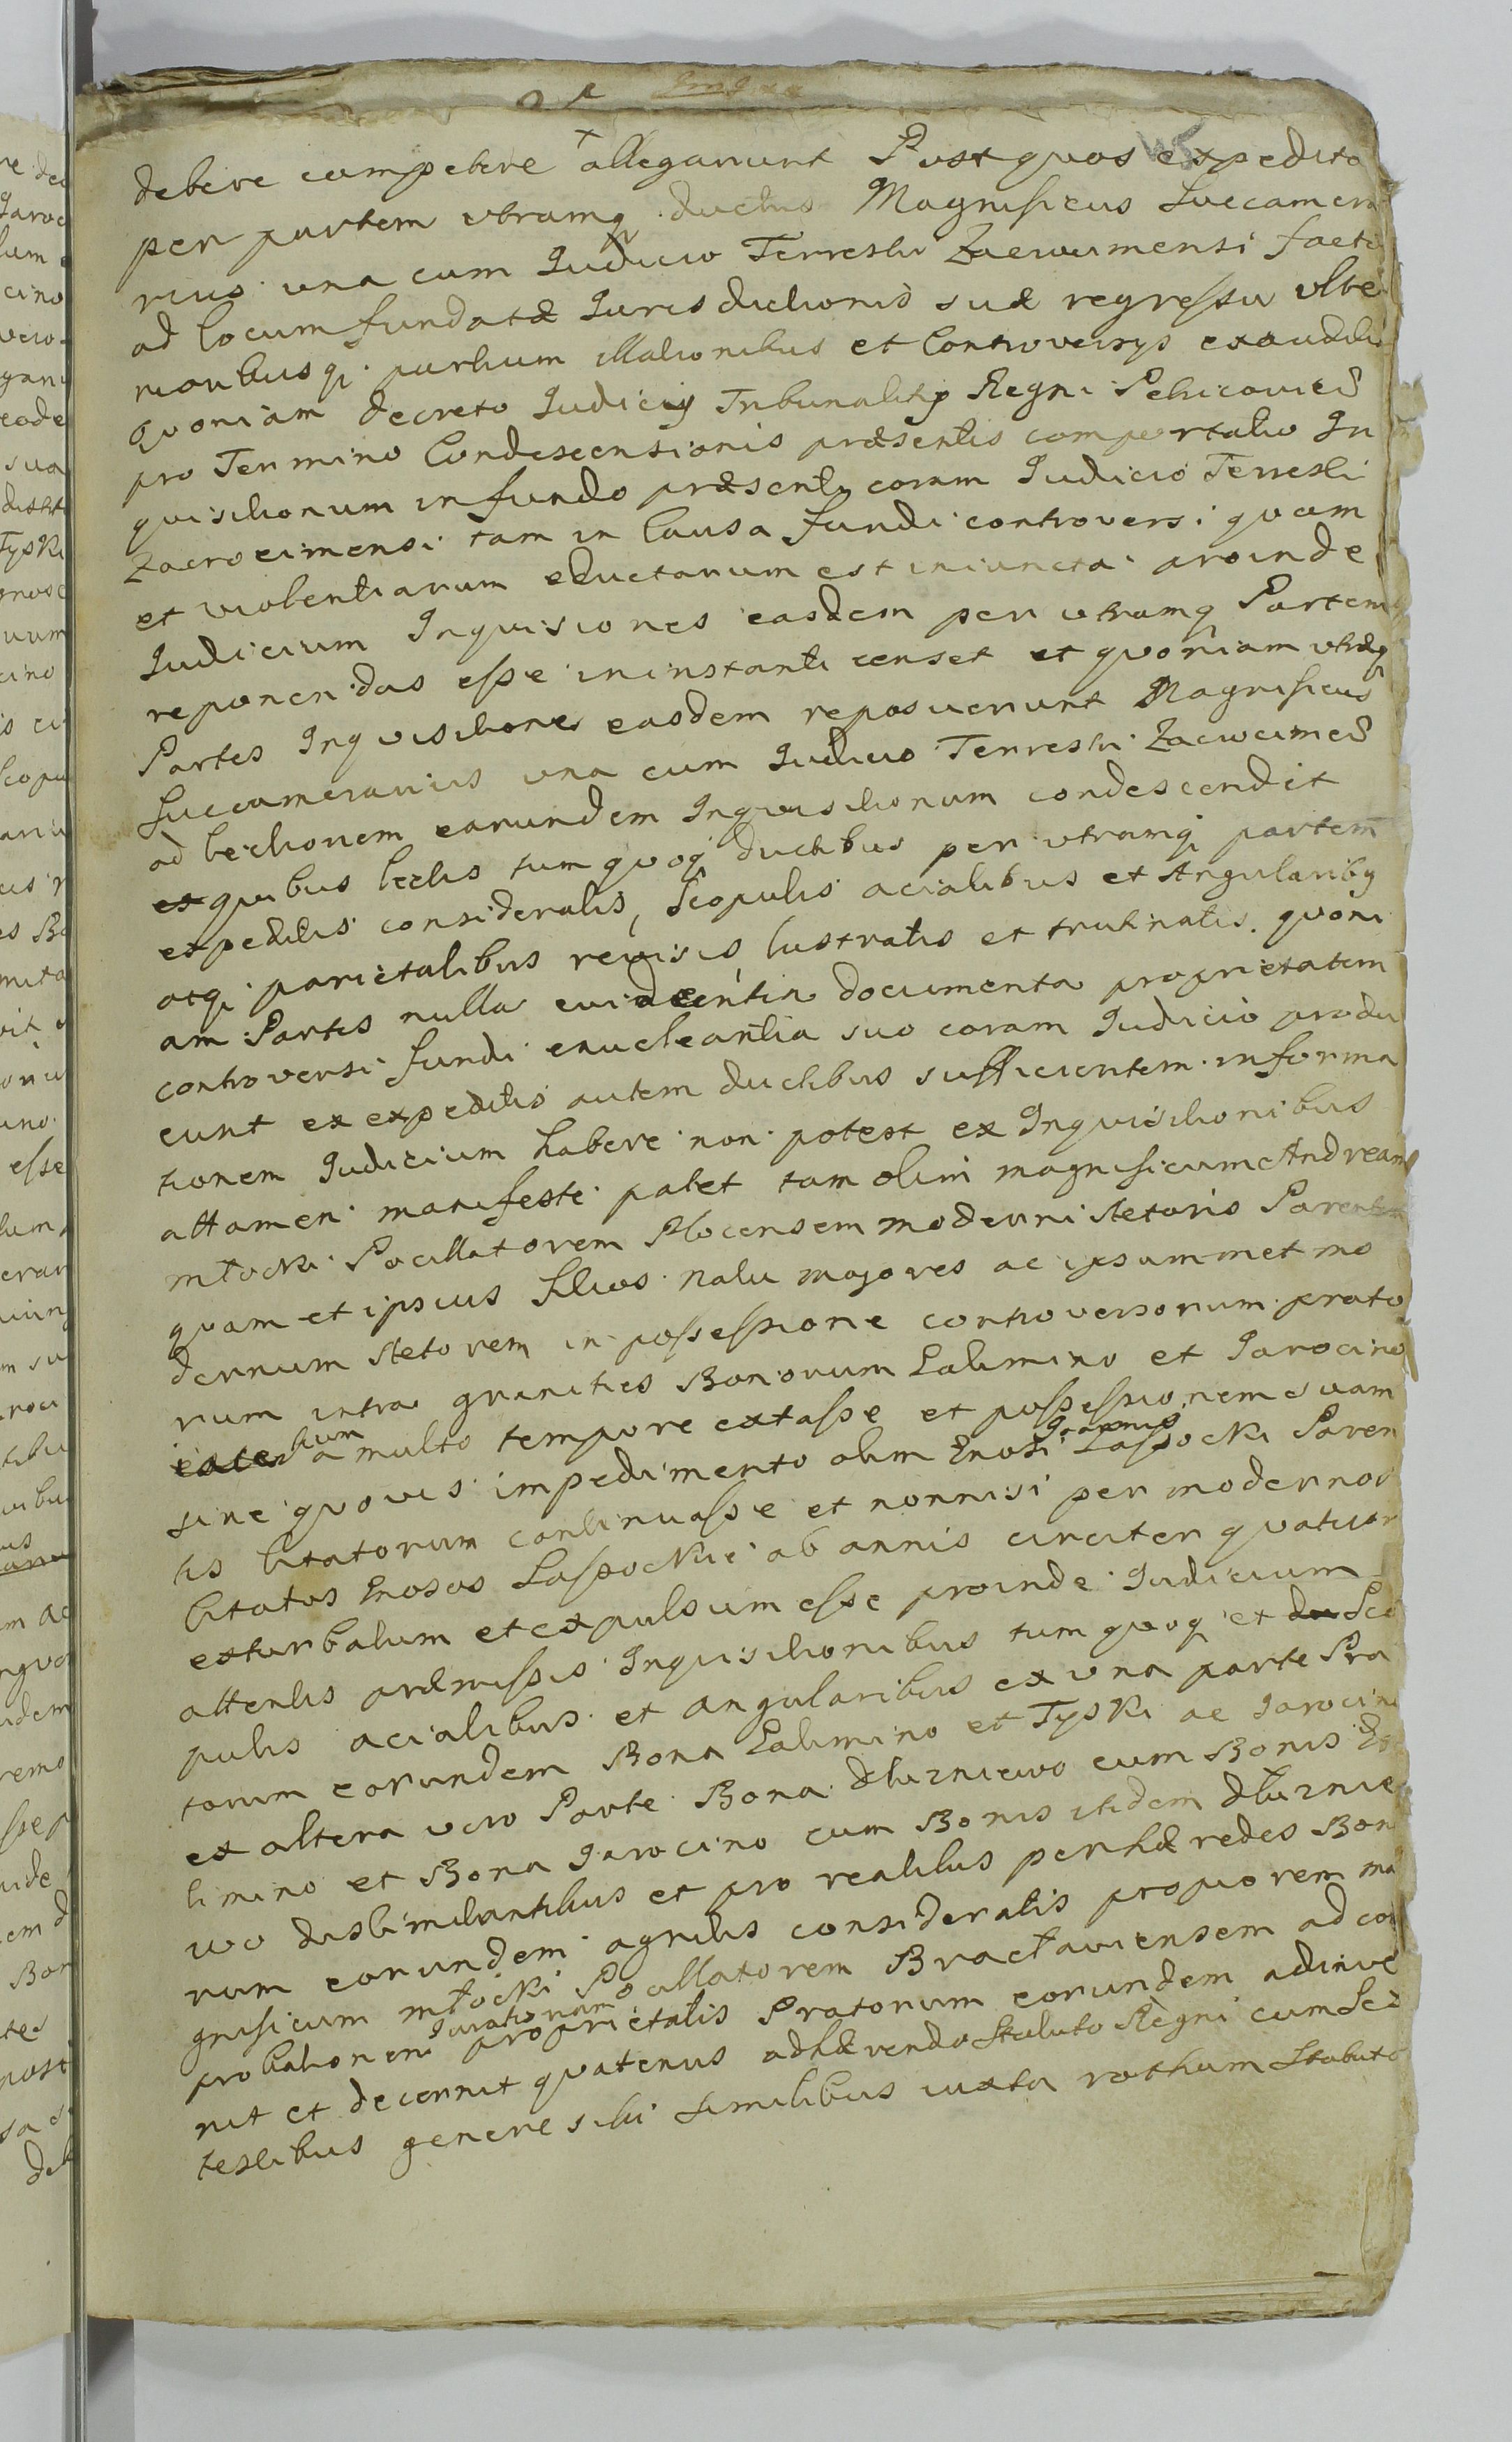 45
debere competere allegarunt Post quos expedito
per partem utramq ductus Magnificus Succamera
rius una cum Judicio Terrestri Zacrocimensi facto
ad locum fundatæ Jurisdictionis suæ regressu ulte
rioribusq partium illationibus et Controversijs exauditis
quoniam decreto Judicij Tribunalitij Regni Petricovien
pro Termino Condescensionis præsentis comportatio In
quisitionum in fundo præsenti coram Judicio Terrestri
Zacrocimensi tam in Causa fundi controversi quam
et violentiarum eductarum est iniuncta proinde
Judicium Inquisiones easdem per utramq Partem
reponendas esse in instanti censet et quoniam utræq
Partes Inquisitiones easdem reposuerunt Magnificus
Succamerarius una cum Judicio Terrestri Zacrocimen
ad lectionem earundem Inquisitionum condescendit
ex quibus lectis tum quoq ductibus per utramq partem
expeditis consideratis, Scopulis acialibus et Angularibq
atq parietalibus revisis, lustratis et trutinatis. quoni
am Partes nulla evidentia documenta proprietatem
controversi fundi enucleantia suo coram Judicio produ
cunt ex expeditis autem ductibus sufficientem informa
tionem Judicium habere non potest ex Inquisitionibus
attamen manifeste patet tam olim magnificum Andream
Młocki Pocillatorem Plocensem moderni Actoris Parentem
quam et ipsius filios natu majores ac ipsummet mo
dernum Actorem in possessione controversorum prato
rum intra granities Bonorum Lalimino et Jarocino
existentium a multo tempore extasse et possessionem suam
sine quovis impedimento olim Gnosi Joannis Lassocki Paren
tis Citatorum continuasse et nonnisi per modernos
Citatos Gnosos Lassockie ab annis circiter quatuor
exturbatum et expulsum esse proinde Judicium
attentis præmissis Inquisitionibus tum quoq et Sco
pulis acialibus et angularibus ex una parte Pra
torum eorundem Bona Lalimino et Tyski ac Jarocino
ex altera vero Parte Bona Dłuzniewo cum Bonis La
limino et Bona Jarocino cum Bonis itidem Dłuznie
wo dislimitantibus et pro realibus per hæredes Bono
rum eorundem agnitis consideratis propiorem ma
gnificum Młocki Pocillatorem Bracłaviensem ad com
probationem Juratoriam proprietatis Pratorum eorundem adinve
nit et decernit quatenus adhærendo Statuto Regni cum Sex
testibus genere sibi similibus iuxta rotham Statuto